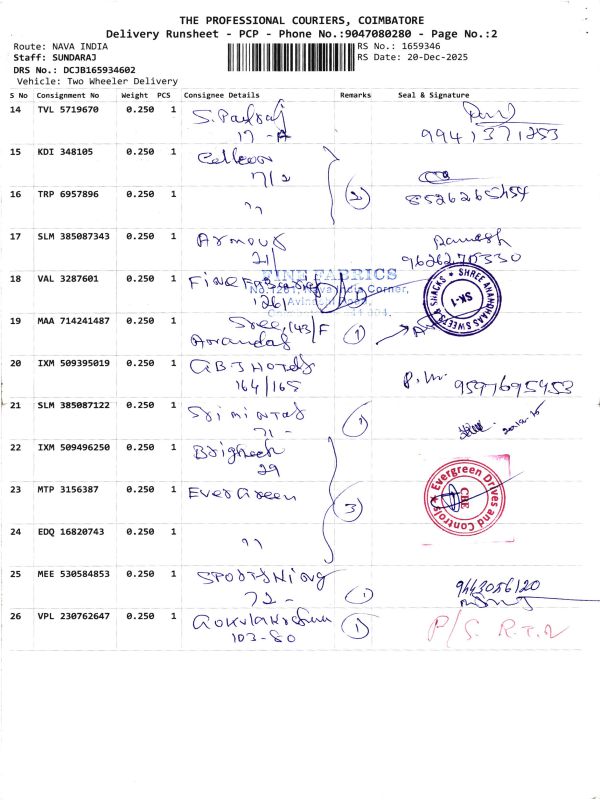 THE PROFESSIONAL COURIERS, COIMBATORE
Delivery Runsheet - PCP - Phone No.:9047080280 - Page No.:2
Route: NAVA INDIA
RS No.: 1659346
Staff: SUNDARAJ
RS Date: 20-Dec-2025
DRS No.: DCJB165934602
Vehicle: Two Wheeler Delivery
S No Consignment No Weight PCS Consignee Details Remarks Seal & Signature
14 TVL 5719670 0.250 1
17 -A
9941371253
15 KDI 348105 0.250 1
7/2
16 TRP 6957896 0.250 1 ,, 2
8526265454
17 SLM 385087343 0.250 1 Armour Ramesh
21/ 9626270330
18 VAL 3287601 0.250 1 Fine Fabrics
1261
FINE FABRICS
No.1261, Nava India Corner,
Avinashi Road,
SHREE ANANDHAAS SWEETS & SNACKS
SK-1
19 MAA 714241487 0.250 1 Sree (43/F
Anandas 1
20 IXM 509395019 0.250 1 GBT Hotels
164/165
P.M. 9597695453
21 SLM 385087122 0.250 1
71 - 1
22 IXM 509496250 0.250 1
29
23 MTP 3156387 0.250 1 Evergreen 3
Evergreen Drives and Controls
CBE
24 EDQ 16820743 0.250 1 ,,
25 MEE 530584853 0.250 1
72 - 1
9443056120
26 VPL 230762647 0.250 1 Gokulakrishnan 1
103-80
P/S. R.T.O